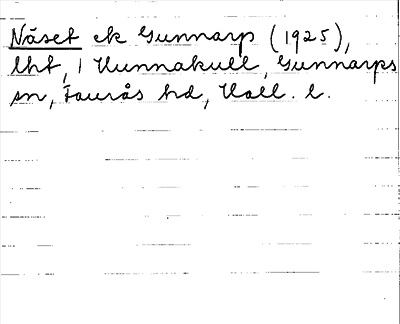 Näset ek Gunnarp (1925),
lht, 1 Hunnakull, Gunnarps
sn, Faurås hd, Hall. l.